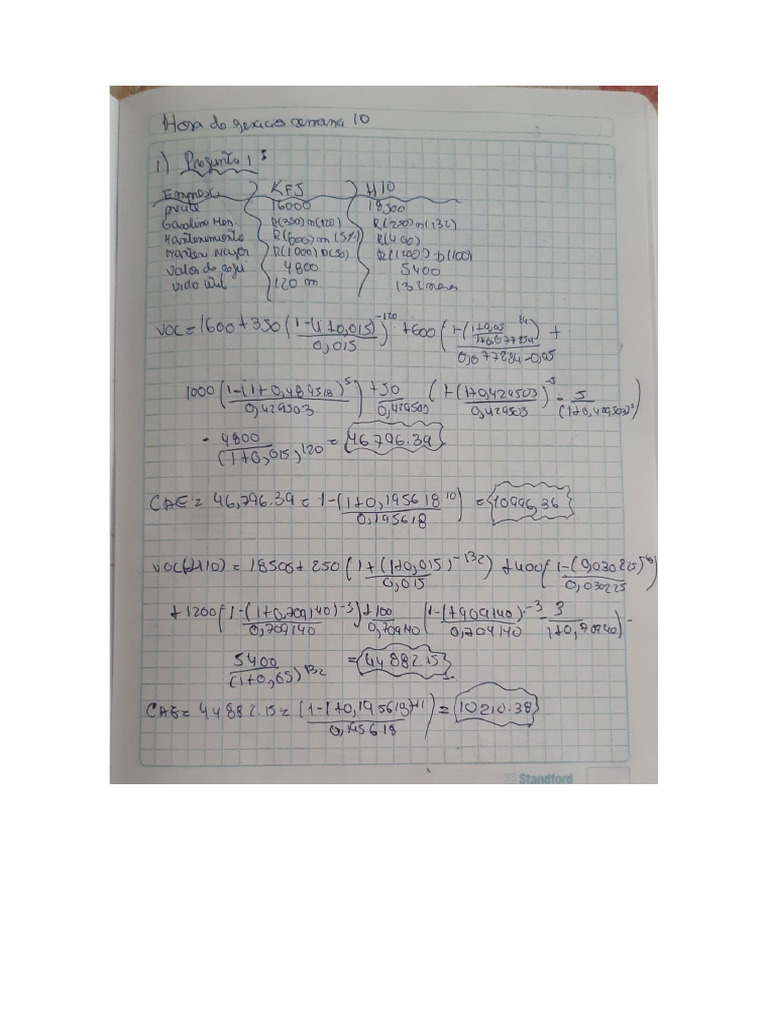 Hora de gexacio semana 10
1) Pregunta 1 :
Empresa KFJ H10
precio 16000 18500
Gasolina Men. R(350)m(120) R(250)m(132)
Mantenimiento R(600)m(5%) R(400)
Manteni Mayor R(1000)D(50) R(1200)D(100)
Valor de 4800 5400
vida util 120 m 132 meses
VOC = 1600 + 350 (1-(1+0,015)^-120 / 0,015) + 600 (1-(1+0,05 / 1+0,077284)^84 / 0,077284-0,05) +
1000 (1-(1+0,489518)^5 / 0,429503) + 50 / 0,429503 (1+(1+0,429503)^-5 / 0,429503 - 5 / (1+0,429503)^5)
- 4800 / (1+0,015)^120 = 46796.39
CAE = 46,796.39 = 1-(1+0,195618^10) / 0,195618 = 10996,36
VOC(H10) = 18505 + 250 (1+(1+0,015)^-132 / 0,015) + 400 (1-(0,030225)^ / 0,030225)
+ 1200 (1-(1+0,709140)^-3 / 0,709140) + 100 / 0,709140 (1-(1+909140)^-3 / 0,704140 - 3 / 1+0,70940) -
5400 / (1+0,65)^132 = 44882.15
CAE = 44882.15 = (1-1+0,195619)^11 / 0,195618) = 10210.38
Standford